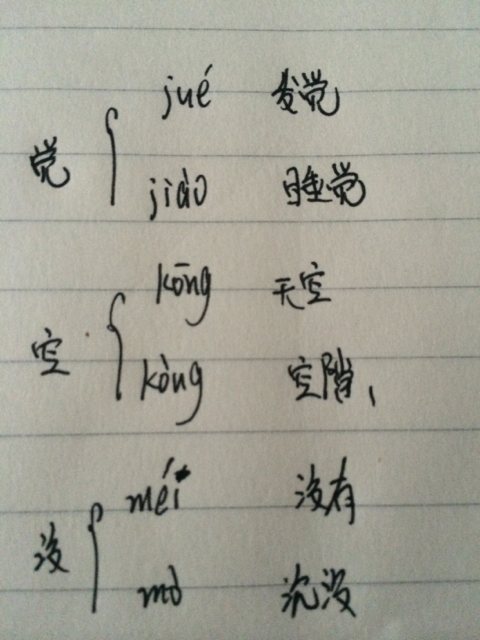 jué 发觉
觉
jiào 睡觉
kōng 天空
空
kòng 空隙、
méi 没有
没
mò 沉没